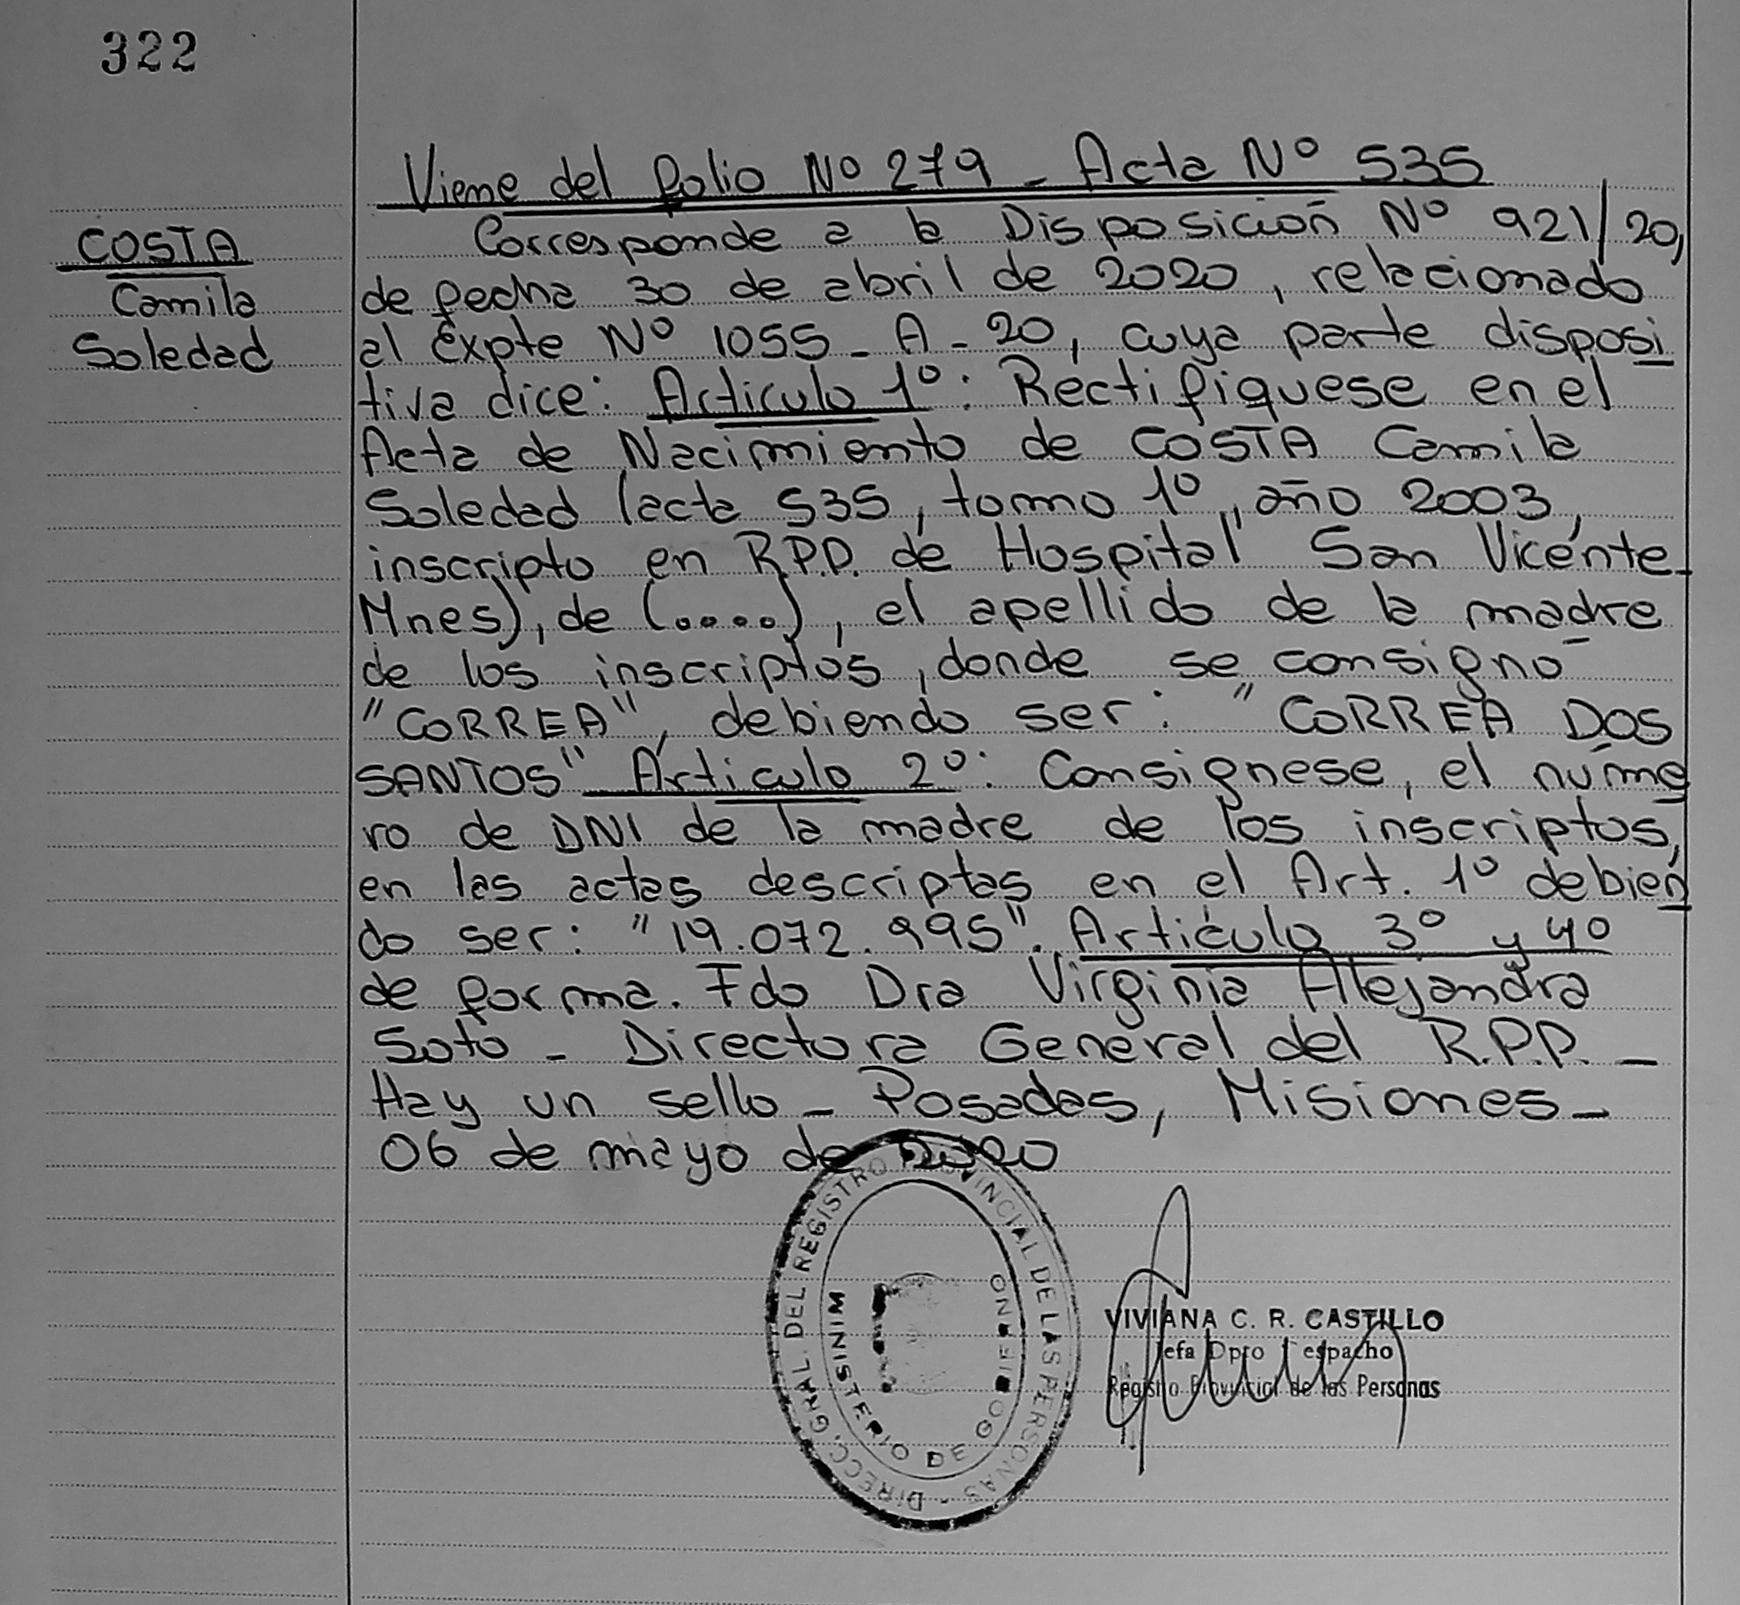 322
COSTA
Camila
Soledad
Viene del folio Nº 279 - Acta Nº 535
Corresponde a la Disposición Nº 921/20,
de fecha 30 de abril de 2020, relacionado
al Expte Nº 1055 - A - 20, cuya parte disposi
tiva dice: Artículo 1º: Rectifiquese en el
Acta de Nacimiento de COSTA Camila
Soledad (acta 535, tomo 1º, año 2003,
inscripto en R.P.P. de Hospital San Vicente-
Mnes), de (.....), el apellido de la madre
de los inscriptos, donde se consignó
"CORREA", debiendo ser: "CORREA DOS
SANTOS" Artículo 2º: Consignese, el núme
ro de DNI de la madre de los inscriptos,
en las actas descriptas en el Art. 1º debien
do ser: "19.072.995". Artículo 3º y 4º
de forma. Fdo Dra Virginia Alejandra
Soto - Directora General del R.P.P. -
Hay un sello - Posadas, Misiones -
06 de mayo de 2020
DIRECC. GRAL. DEL REGISTRO PROVINCIAL DE LAS PERSONAS -
MINISTERIO DE GOBIERNO
VIVIANA C. R. CASTILLO
Jefa Dpto Despacho
Registro Provincial de las Personas